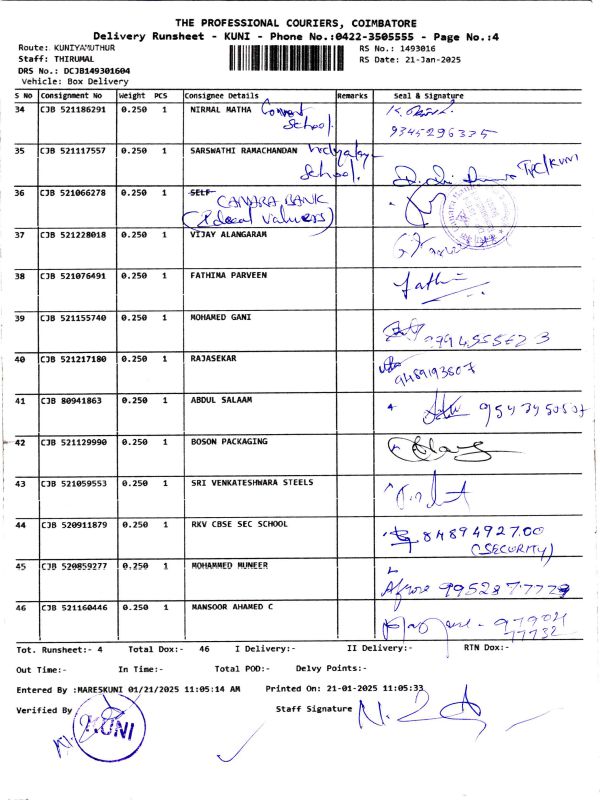 THE PROFESSIONAL COURIERS, COIMBATORE
Delivery Runsheet - KUNI - Phone No.:0422-3505555 - Page No.:4
Route: KUNIYAMUTHUR RS No.: 1493016
Staff: THIRUMAL RS Date: 21-Jan-2025
DRS No.: DCJB149301604
Vehicle: Box Delivery
S NO Consignment No Weight PCS Consignee Details Remarks Seal & Signature
34 CJB 521186291 0.250 1 NIRMAL MATHA Convent School.
9345296335
35 CJB 521117557 0.250 1 SARSWATHI RAMACHANDAN Vidyalaya School.
36 CJB 521066278 0.250 1 SELF CANARA BANK
(Ideal Valuers)
37 CJB 521228018 0.250 1 VIJAY ALANGARAM
38 CJB 521076491 0.250 1 FATHIMA PARVEEN Fathi
39 CJB 521155740 0.250 1 MOHAMED GANI
40 CJB 521217180 0.250 1 RAJASEKAR
9489193507
41 CJB 80941863 0.250 1 ABDUL SALAAM
42 CJB 521129990 0.250 1 BOSON PACKAGING
43 CJB 521059553 0.250 1 SRI VENKATESHWARA STEELS
44 CJB 520911879 0.250 1 RKV CBSE SEC SCHOOL 8489492700
(SECURITY)
45 CJB 520859277 0.250 1 MOHAMMED MUNEER
46 CJB 521160446 0.250 1 MANSOOR AHAMED C
77732
Tot. Runsheet:- 4 Total Dox:- 46 I Delivery:- II Delivery:- RTN Dox:-
Out Time:- In Time:- Total POD:- Delvy Points:-
Entered By :MARESKUNI 01/21/2025 11:05:14 AM Printed On: 21-01-2025 11:05:33
Verified By Staff Signature
KUNI